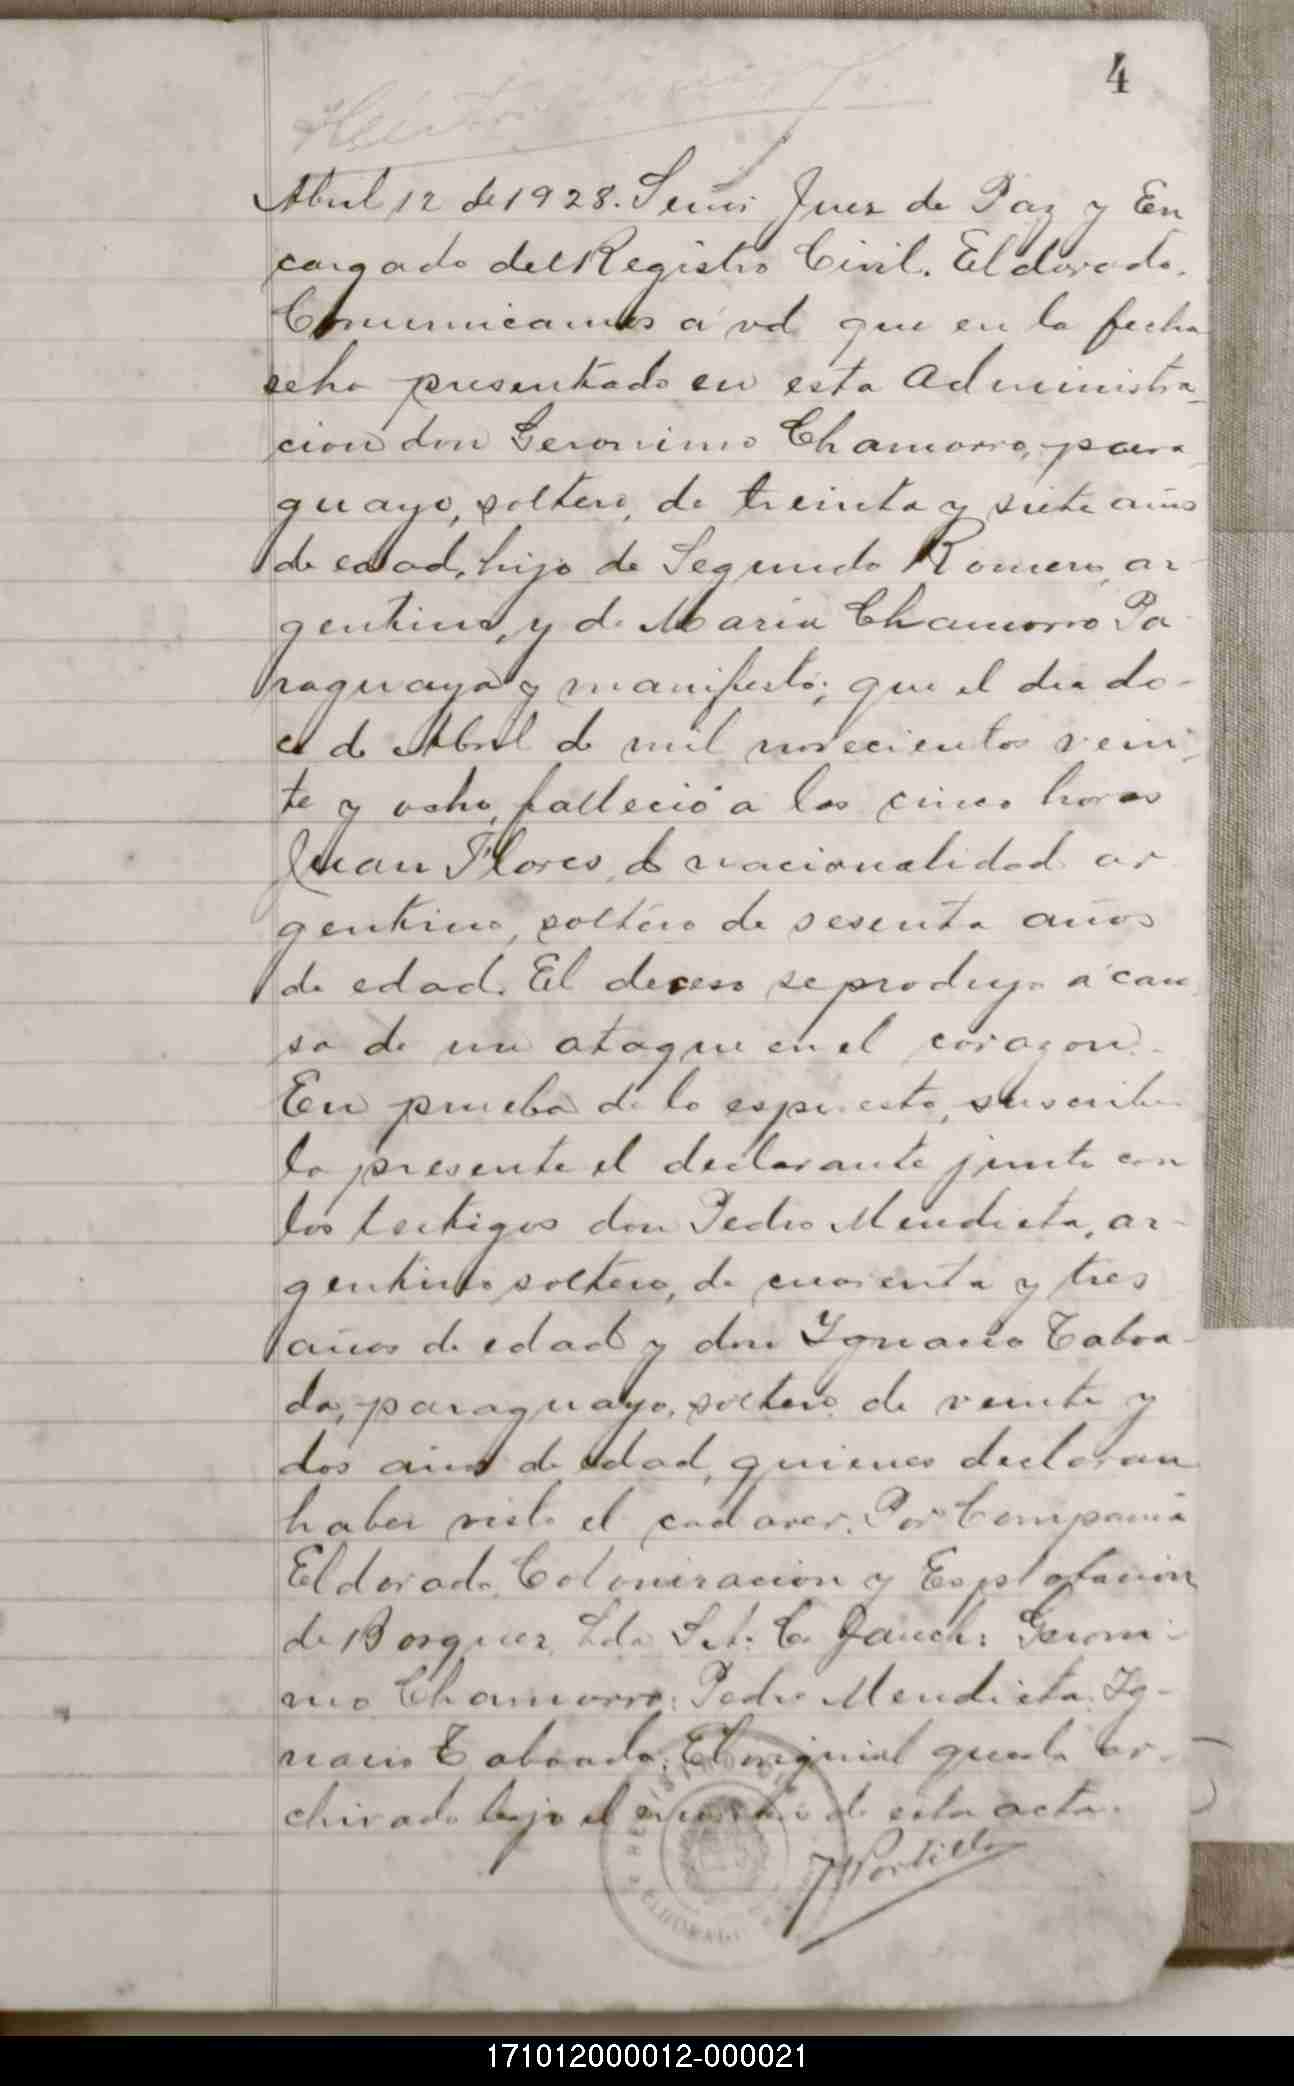 4
Abril 12 de 1928. Señor Juez de Paz y En
cargado del Registro Civil. Eldorado.
Comunicamos a vd que en la fecha
seha presentado en esta Administra-
cion don Geronimo Chamorro, para-
guayo, soltero, de treinta y siete años
de edad, hijo de Segundo Romero, ar-
gentino, y de Maria Chamorro Pa-
raguaya y manifestó; que el dia do-
ce de Abril de mil novecientos vein-
te y ocho, falleció a las cinco horas
Juan Flores, de nacionalidad ar
gentino, soltero de sesenta años
de edad. El deceso seprodujo a cau
sa de un ataque en el corazon.-
En prueba de lo espuesto, suscribe
la presente el declarante junto con
los testigos don Pedro Mendieta, ar-
gentino soltero, de cuarenta y tres
años de edad y don Ygnacio Taboa-
da, paraguayo, soltero de veinte y
dos años de edad, quienes declaran
haber visto el cadaver. Por Compania
Eldorado Colonizacion y Explotacion
de Bosques Lda C. Jauch: Geroni-
mo Chamorro: Pedro Mendieta: Ig-
nacio Taboada. El original queda ar-
chivado bajo el numero de esta acta.
Portillo
ELDORADO
171012000012-000021